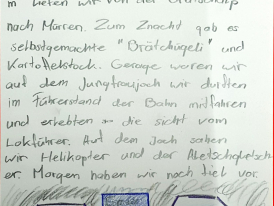 m liefen wir von der Grütschalp
nach Mürren. Zum Znacht gab es
selbstgemachte "Brätchügeli" und
Kartoffelstock. Gerage waren wir
auf dem Jungfraujoch wir durften
im Führerstand der Bahn mitfahren
und erlebten die sicht vom
Lokführer. Auf dem Joch sahen
wir Helikopter und der Aletschgletsch
er. Morgen haben wir noch viel vor.